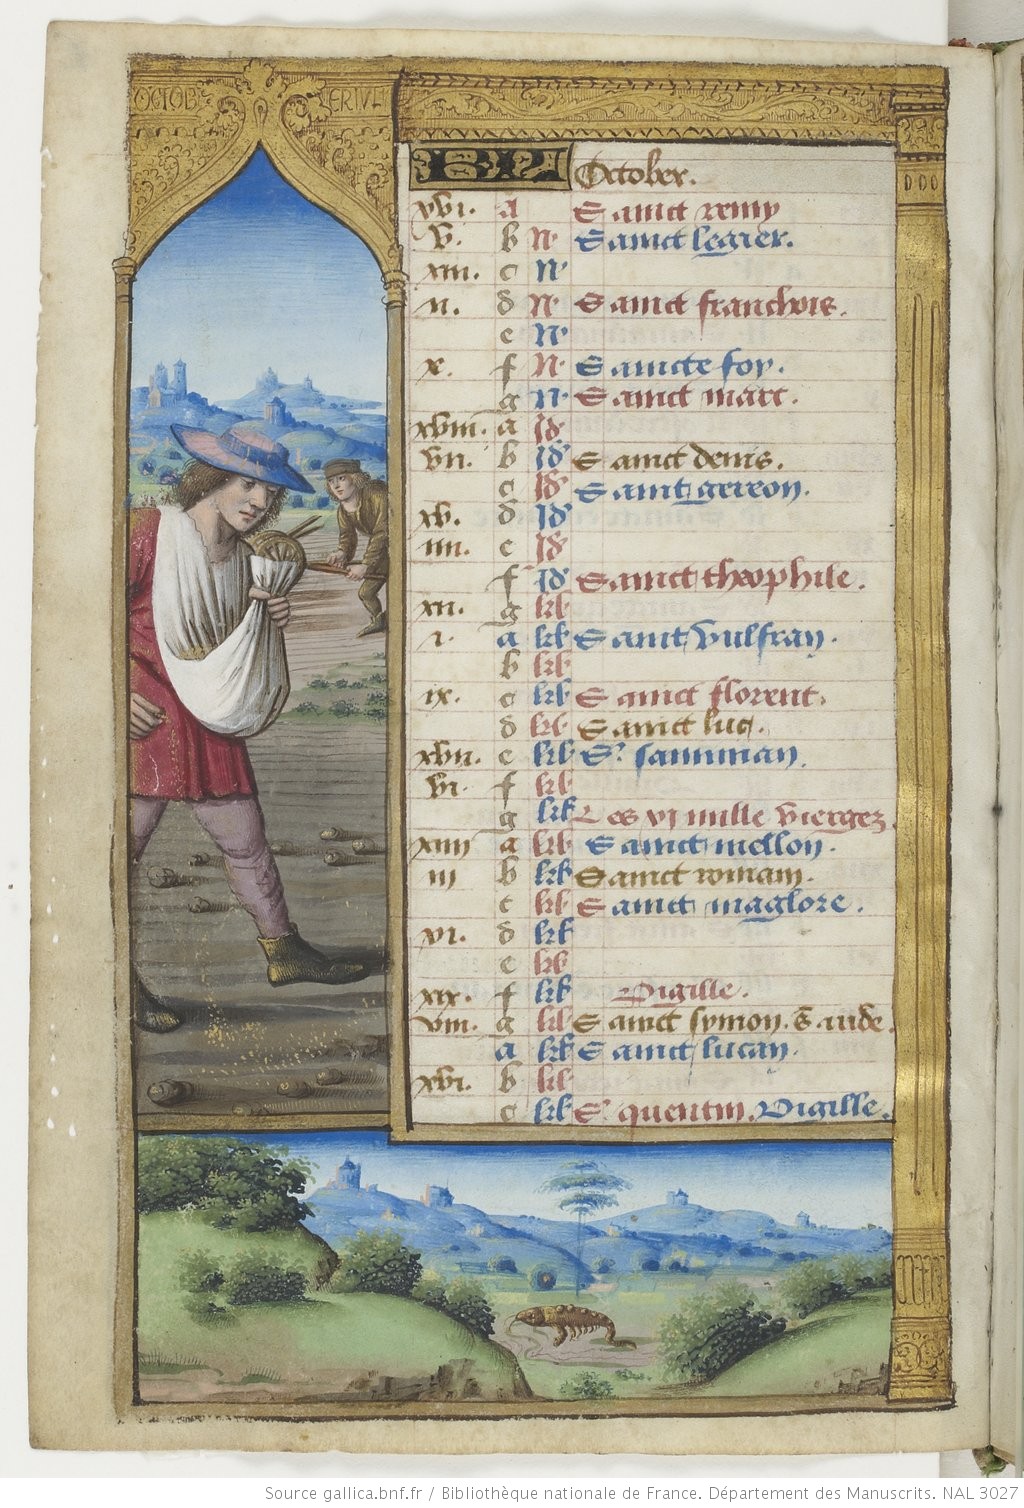 OCTOB ERIVS
October.
xvi. a Sanct remy
v. b N. Sanct legier.
xiii. c N.
ii. d N. Sanct franchois.
e N.
x. f N. Saincte foy.
g N. Sanct marc.
xviii. a Id
vii. b Id Sanct denis.
c Id Sanct gereon.
xv. d Id
iiii. e Id
f Id Sanct theophile.
xii. g kl
i. a kl Sanct Vulfran.
b kl
ix. c kl Sanct florent.
d kl Sanct luc.
xvii. e kl S.
vi. f kl
g kl Les xi mille vierges
xiiii a kl Sanct mellon.
iii b kl Sanct romain.
c kl Sanct maglore.
xi. d kl
e kl
xix. f kl Vigille.
viii. g kl Sanct symon. S. iude.
a kl Sanct lucan.
xvi. b kl
c kl S. quentin. Vigille.
Source gallica.bnf.fr / Bibliothèque nationale de France. Département des Manuscrits. NAL 3027